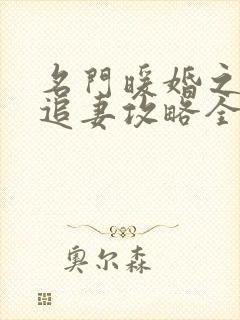 名門暖婚之
追妻攻略全
奥尔森